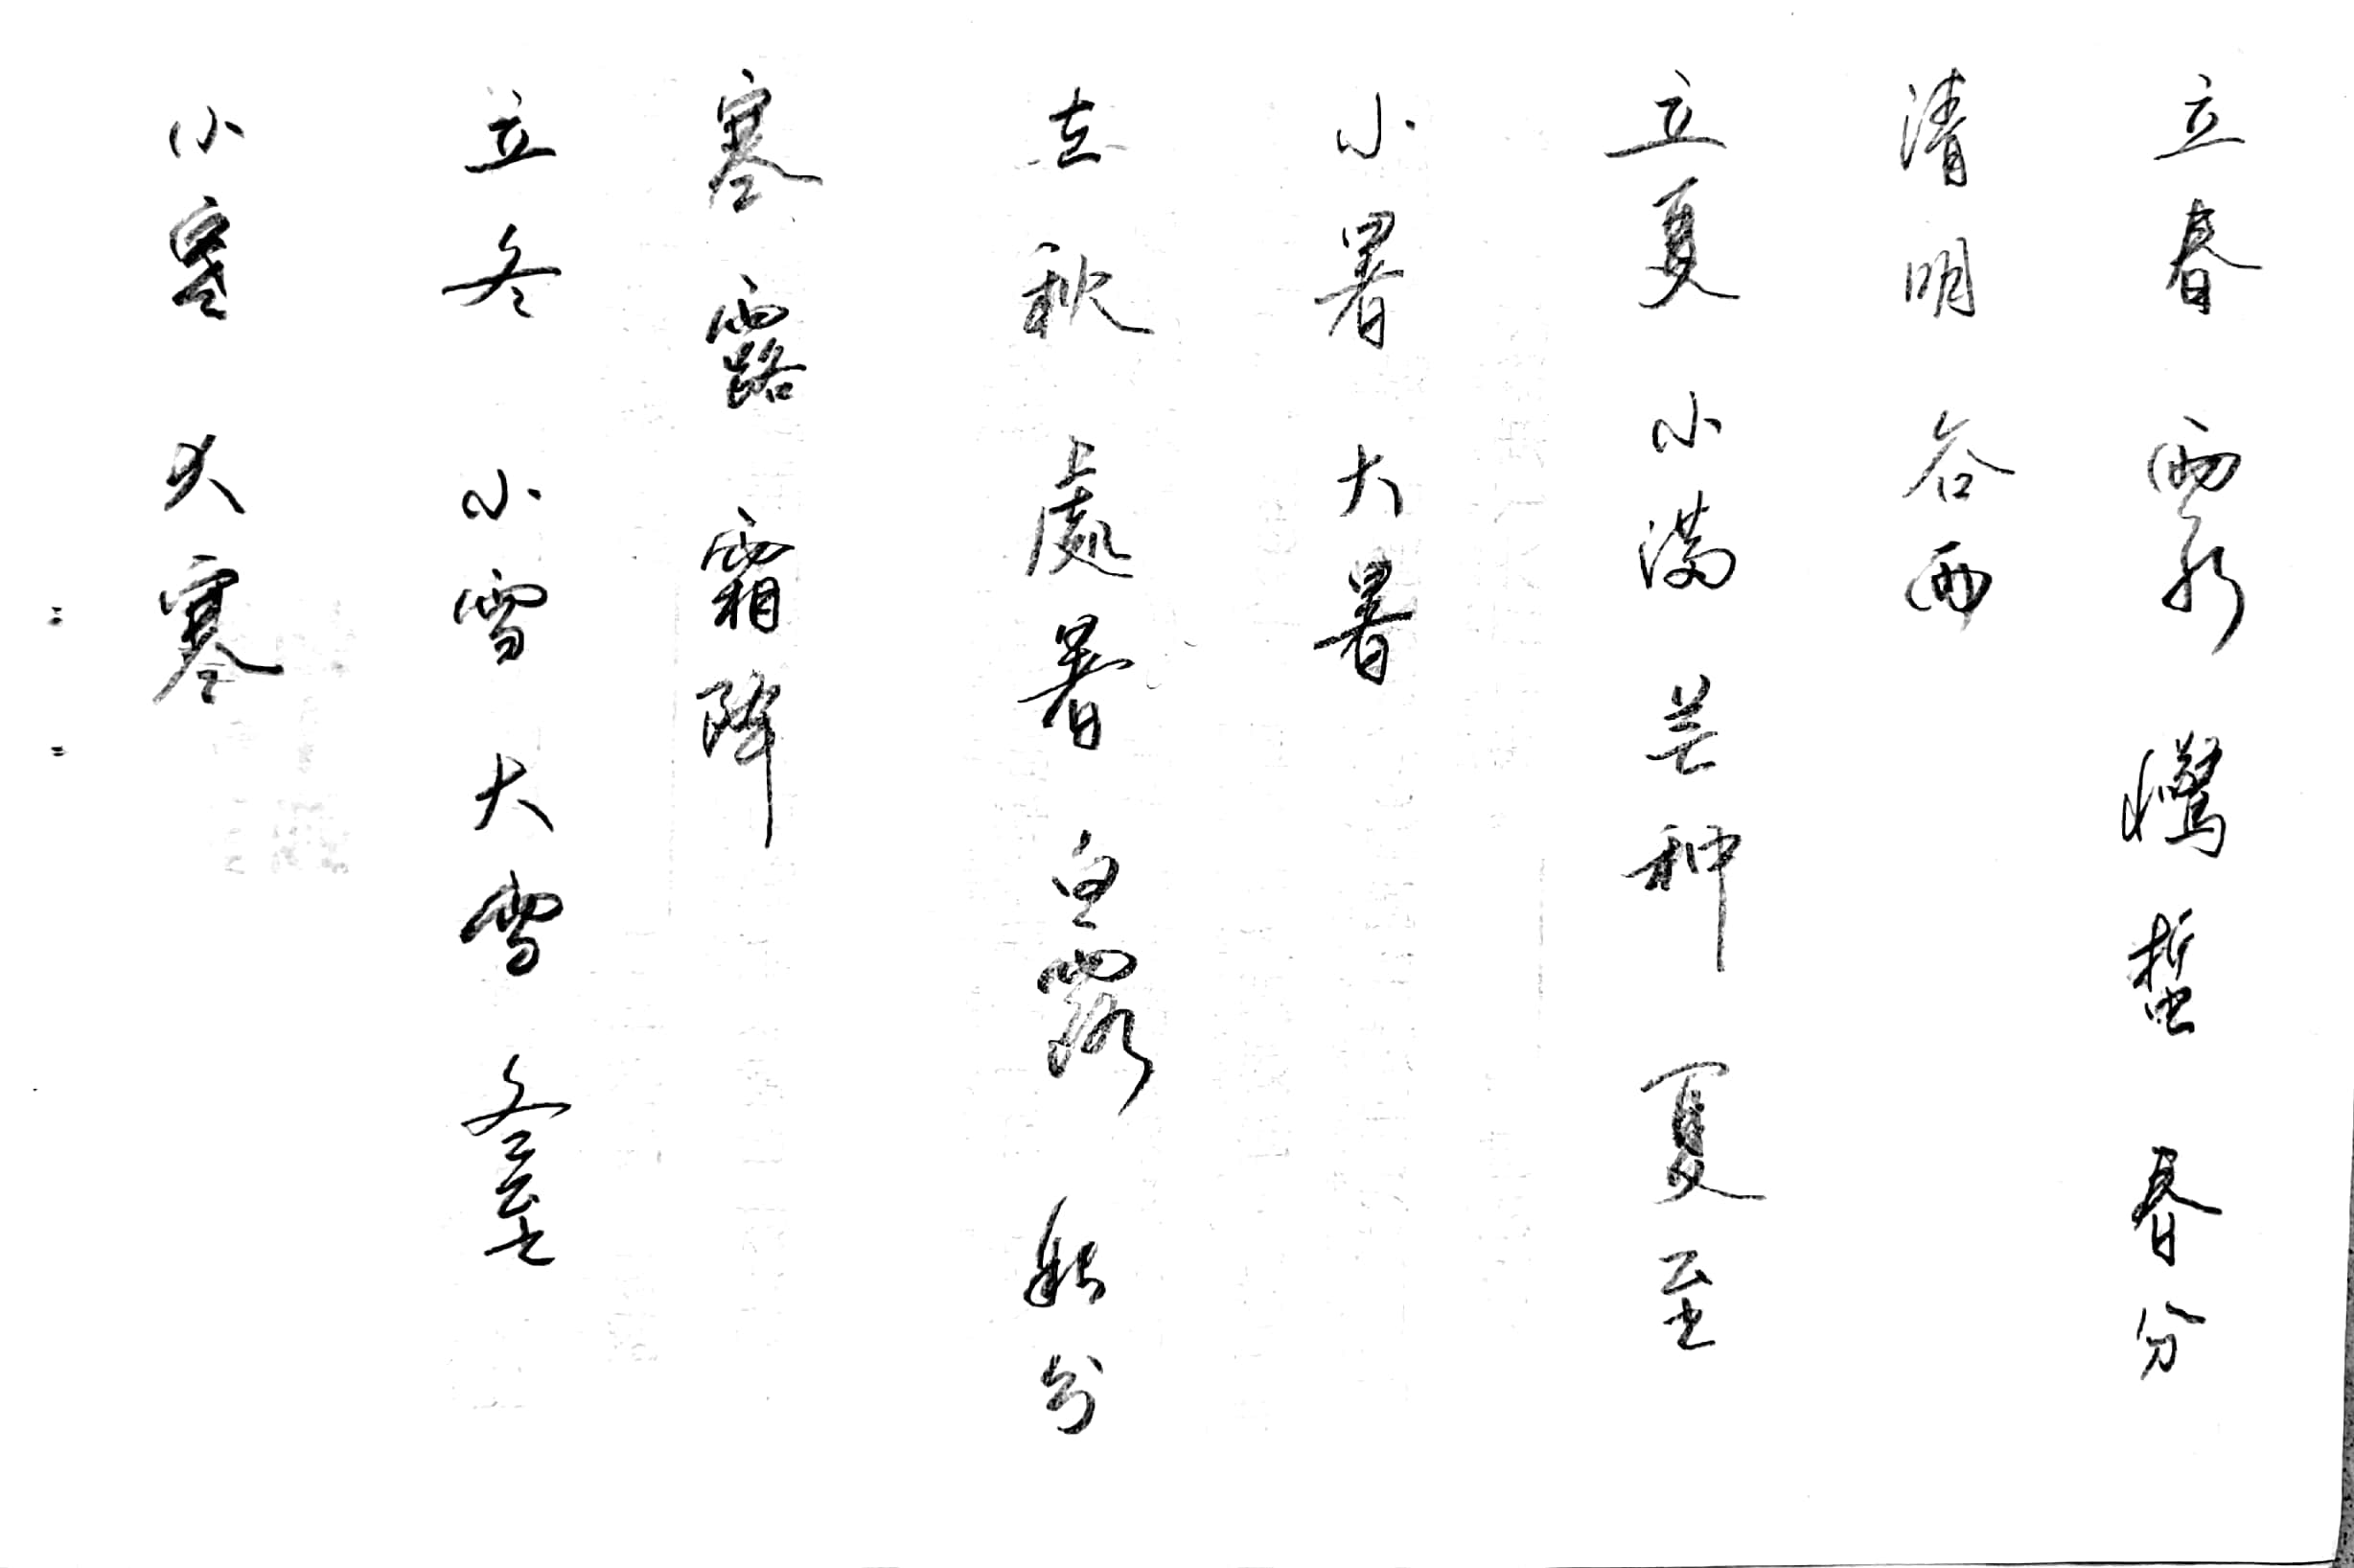 立春 雨水 驚蟄 春分
清明 谷雨
立夏 小滿 芒种 夏至
小暑 大暑
立秋 處暑 白露 秋分
寒露 霜降
立冬 小雪 大雪 冬至
小寒 大寒